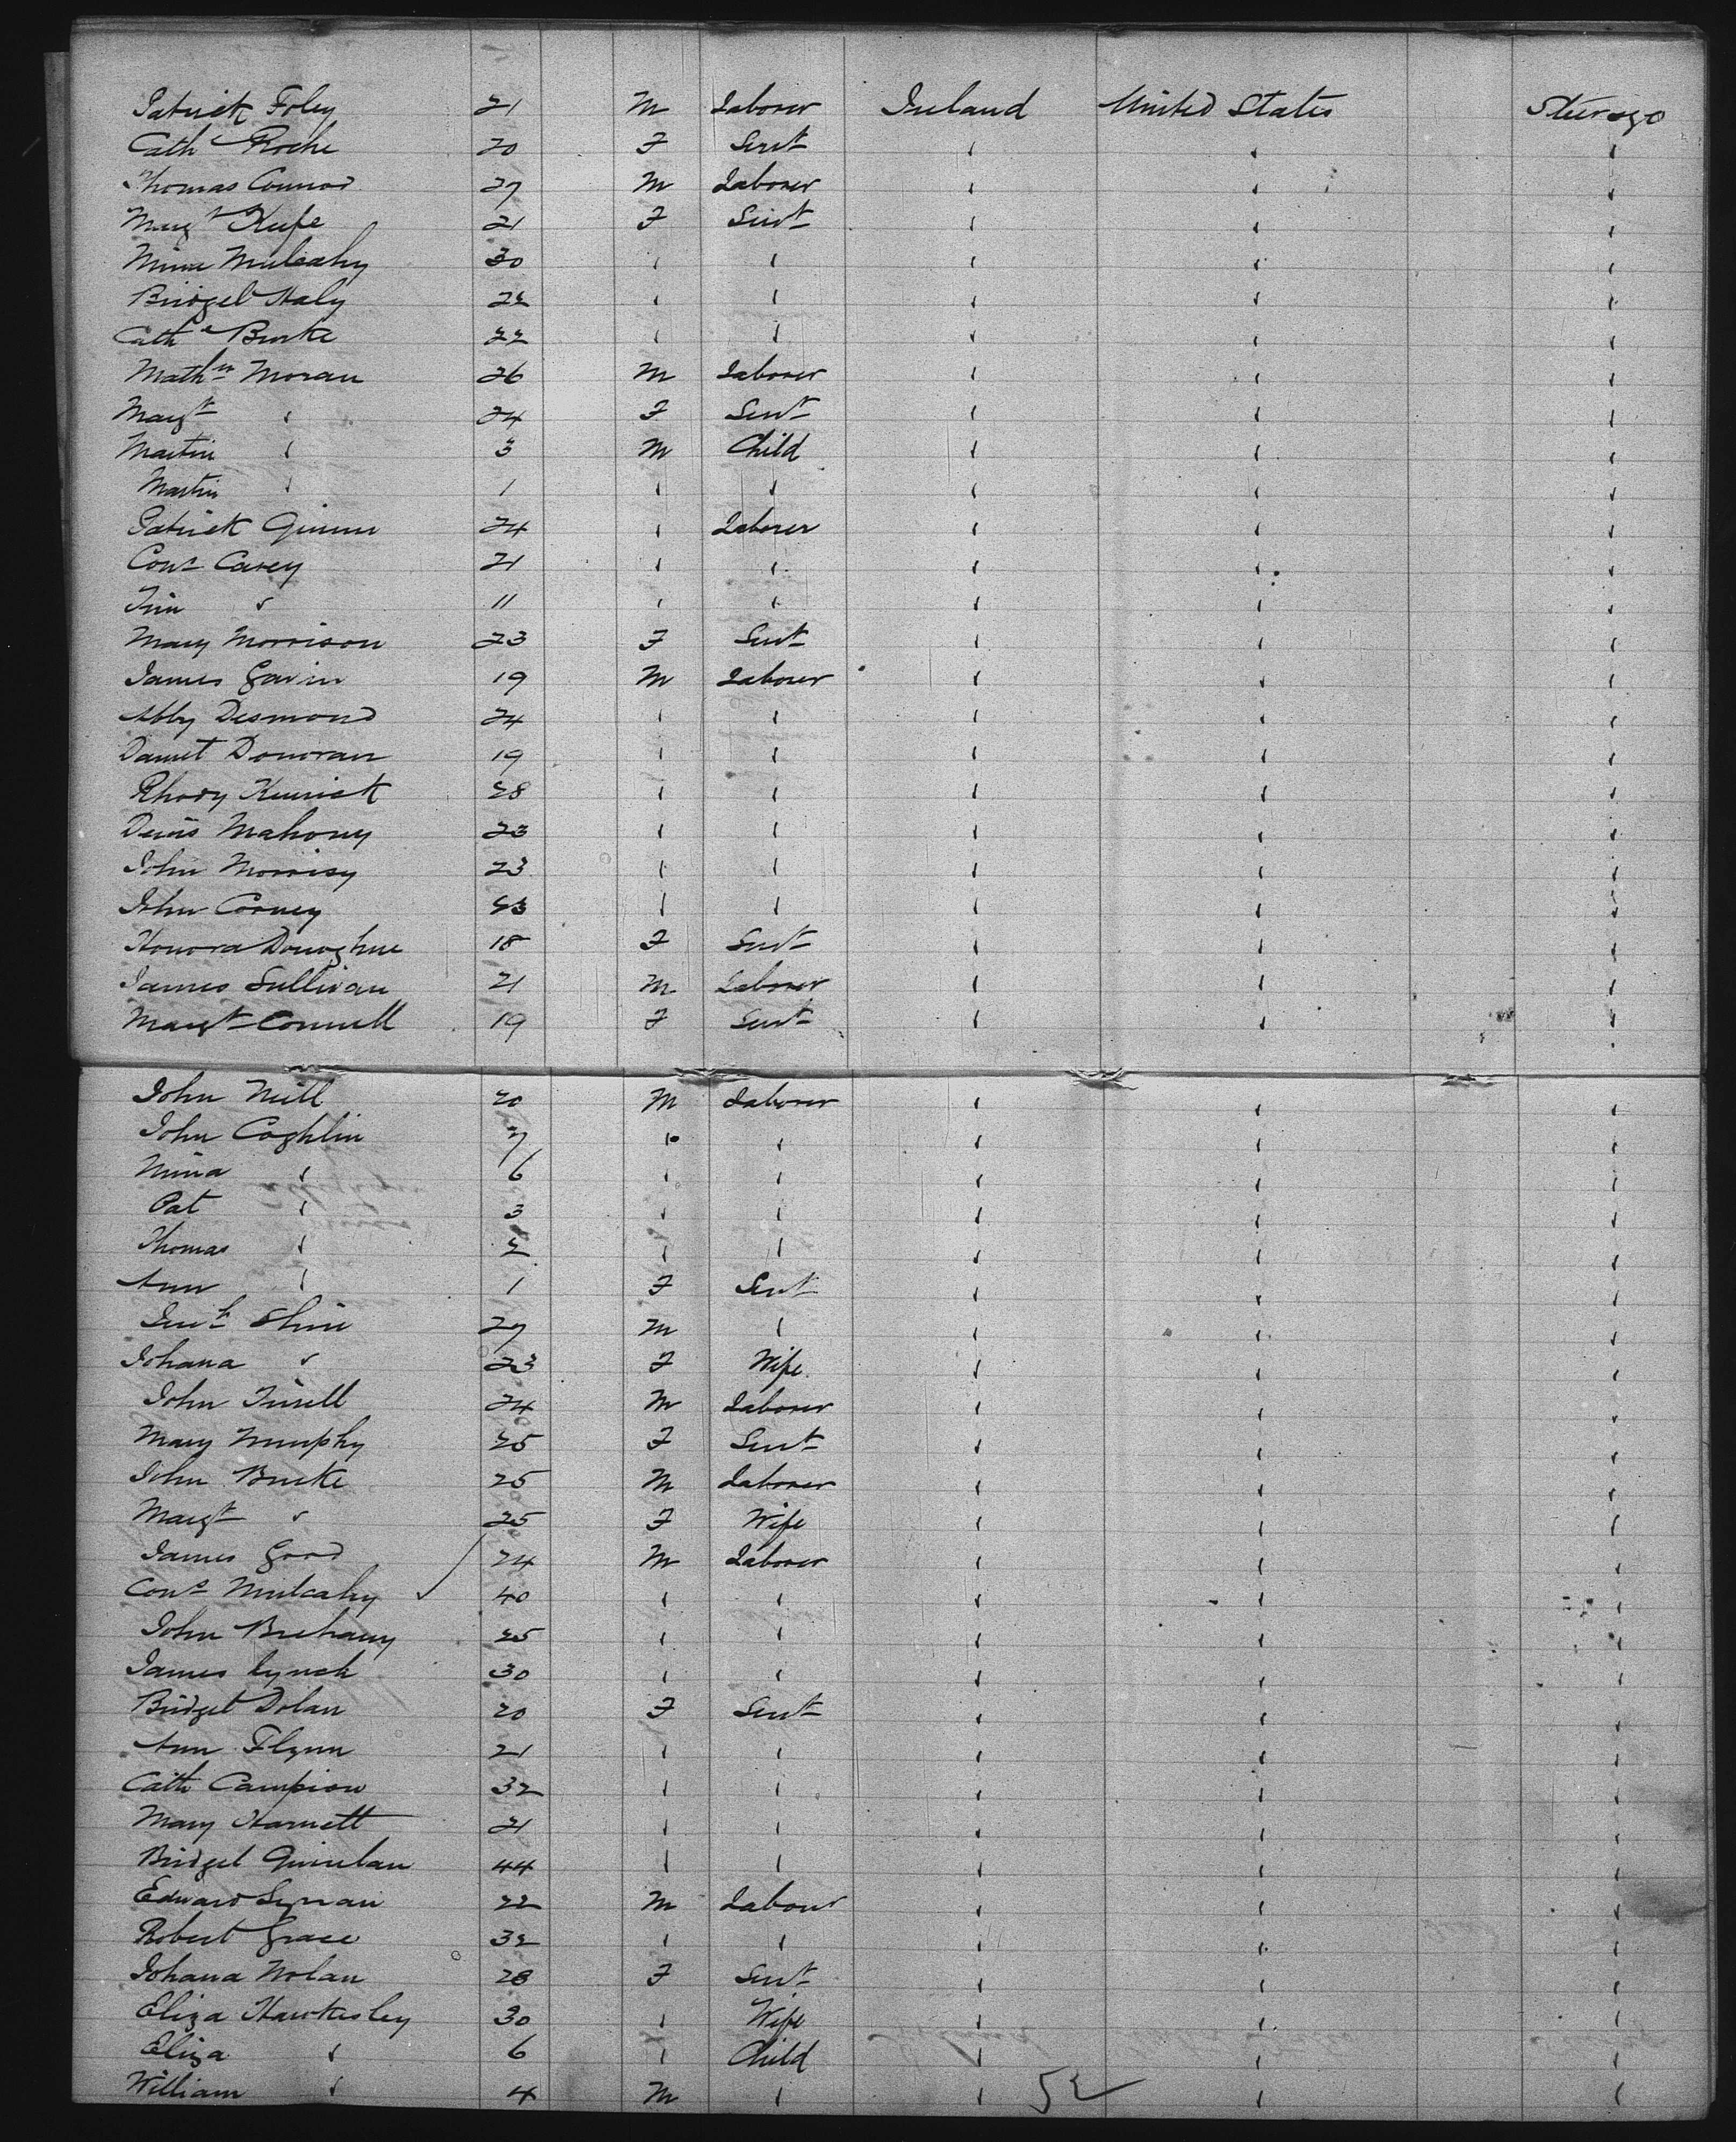 Patrick Foley 21 M Laborer Ireland United States Steerage
Cath Roche 20 F Servt " " "
Thomas Connor 27 M Laborer " " "
Margt Keefe 21 F Servt " " "
Mulcahy 30 " " " " "
Bridget Haly 22 " " " " "
Cathe Burke 22 " " " " "
Mathw Moran 26 M Laborer " " "
Margt " 24 F Servt " " "
Martin " 3 M Child " " "
Martin " 1 " " " " "
Patrick 24 " Laborer " " "
Cons Carey 21 " " " " "
Tim " 11 " " " " "
Mary Morrison 23 F Servt " " "
James Gavin 19 M Laborer " " "
Abby Desmond 24 " " " " "
Daniel Donovan 19 " " " " "
Rhody 28 " " " " "
Denis Mahony 23 " " " " "
John Morrisy 23 " " " " "
John 23 " " " " "
Honora Donoghue 18 F Servt " " "
James Sullivan 21 M Laborer " " "
Margt Connell 19 F Servt " " "
John Neill 20 M Laborer " " "
John Coghlin 7 " " " " "
" 6 " " " " "
Pat " 3 " " " " "
Thomas " 2 " " " " "
Ann " 1 F Servt " " "
Shine 27 M " " " "
Johana " 23 F Wife " " "
John 24 M Laborer " " "
Mary Murphy 25 F Servt " " "
John Burke 25 M Laborer " " "
Margt " 25 F Wife " " "
James Good 24 M Laborer " " "
Cons Mulcahy 40 " " " " "
John Brehany 25 " " " " "
James Lynch 30 " " " " "
Bridget Dolan 20 F Servt " " "
Ann Flynn 21 " " " " "
Cath Campion 32 " " " " "
Mary Harnett 21 " " " " "
Bridget Quinlan 44 " " " " "
Edward 22 M Labour " " "
Robert Grace 32 " " " " "
Johana Nolan 28 F Servt " " "
Eliza Hawkesley 30 " Wife " " "
Eliza " 6 " Child " " "
William " 4 M " " " "
52